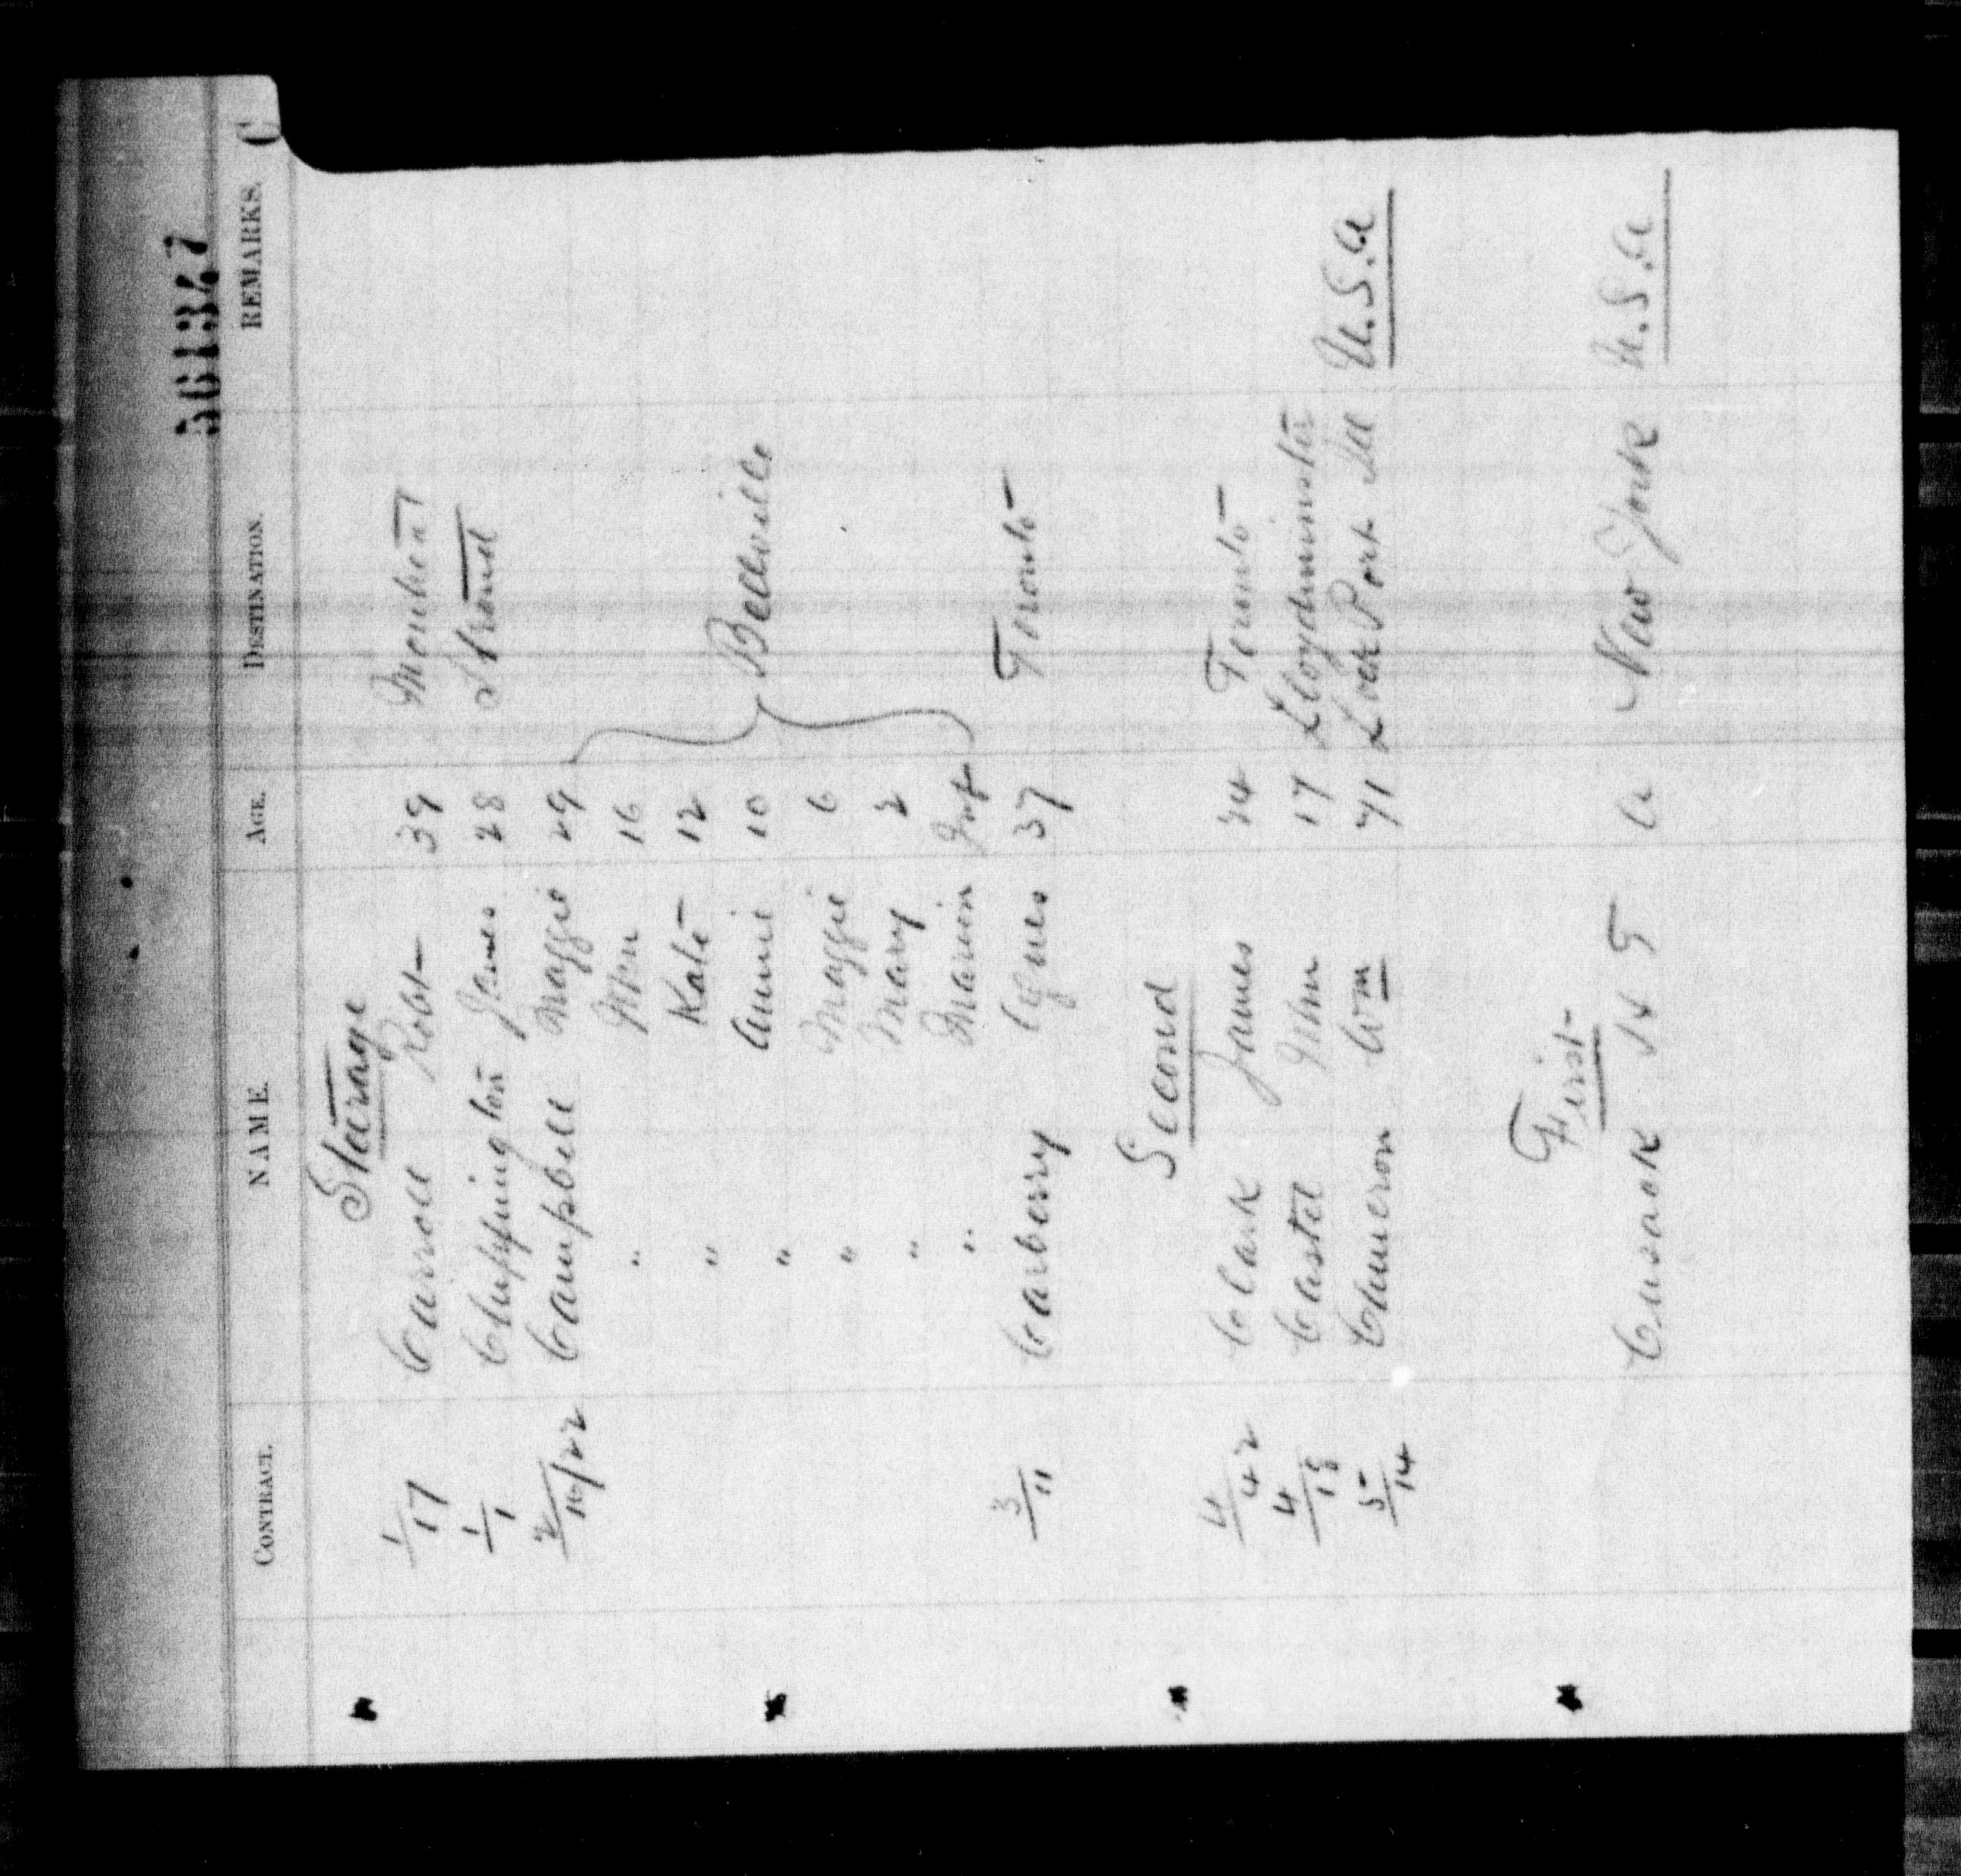 561347
CONTRACT. NAME. AGE. DESTINATION. REMARKS. C
Steerage
1/17 Carroll Robt 39 Montreal
1/1 James 28 Stroud
2/16/22 Campbell Maggie 29
" 16
" Kate 12
" Annie 10 Bellville
" Maggie 6
" Mary 2
" Inf
3/11 Carberry Agnes 37 Toronto
Second
4/42 Clark James Toronto
4/18 Castel 17 Lloydminster
5/14 Cameron Wm 71 Lock Port Ill U.S.A
First
Cusack A New York U.S.A